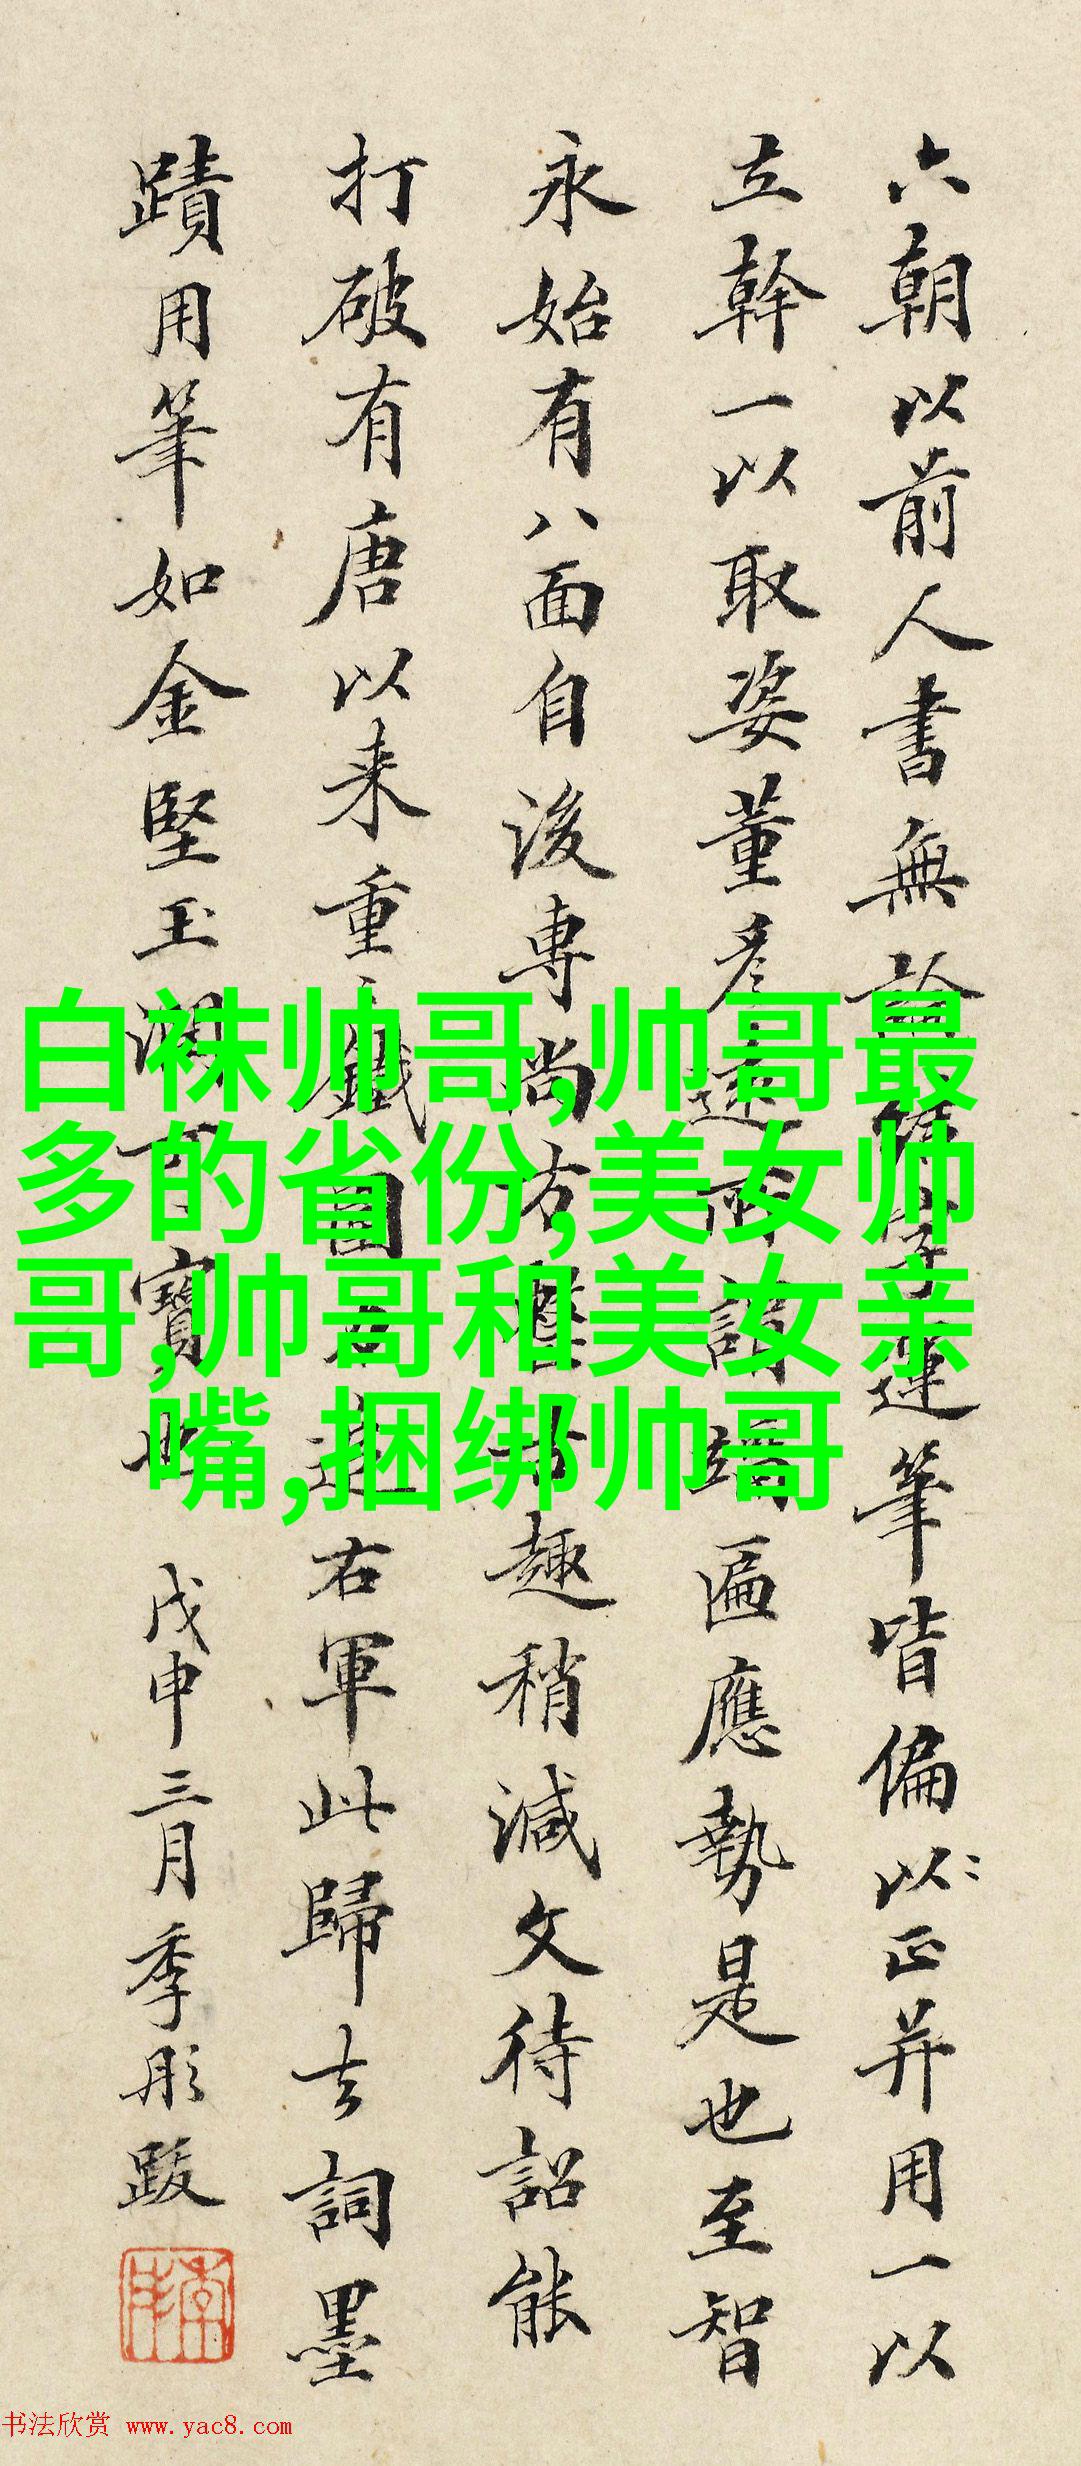 六朝以前人書無論作字運筆皆偏以正并用一以
立幹一以取姿董彦遠所謂端匾應勢是也至智
永始有八面自後専尚右軍書趣稍減文待詔能
打破有唐以来重鐵圍直追右軍此歸去詞墨
蹟用筆如金堅玉潤可寶也 戊申三月季彤跋
白袜帅哥,帅哥最
多的省份,美女帅
哥,帅哥和美女亲
嘴,捆绑帅哥
书法欣赏 www.yac8.com